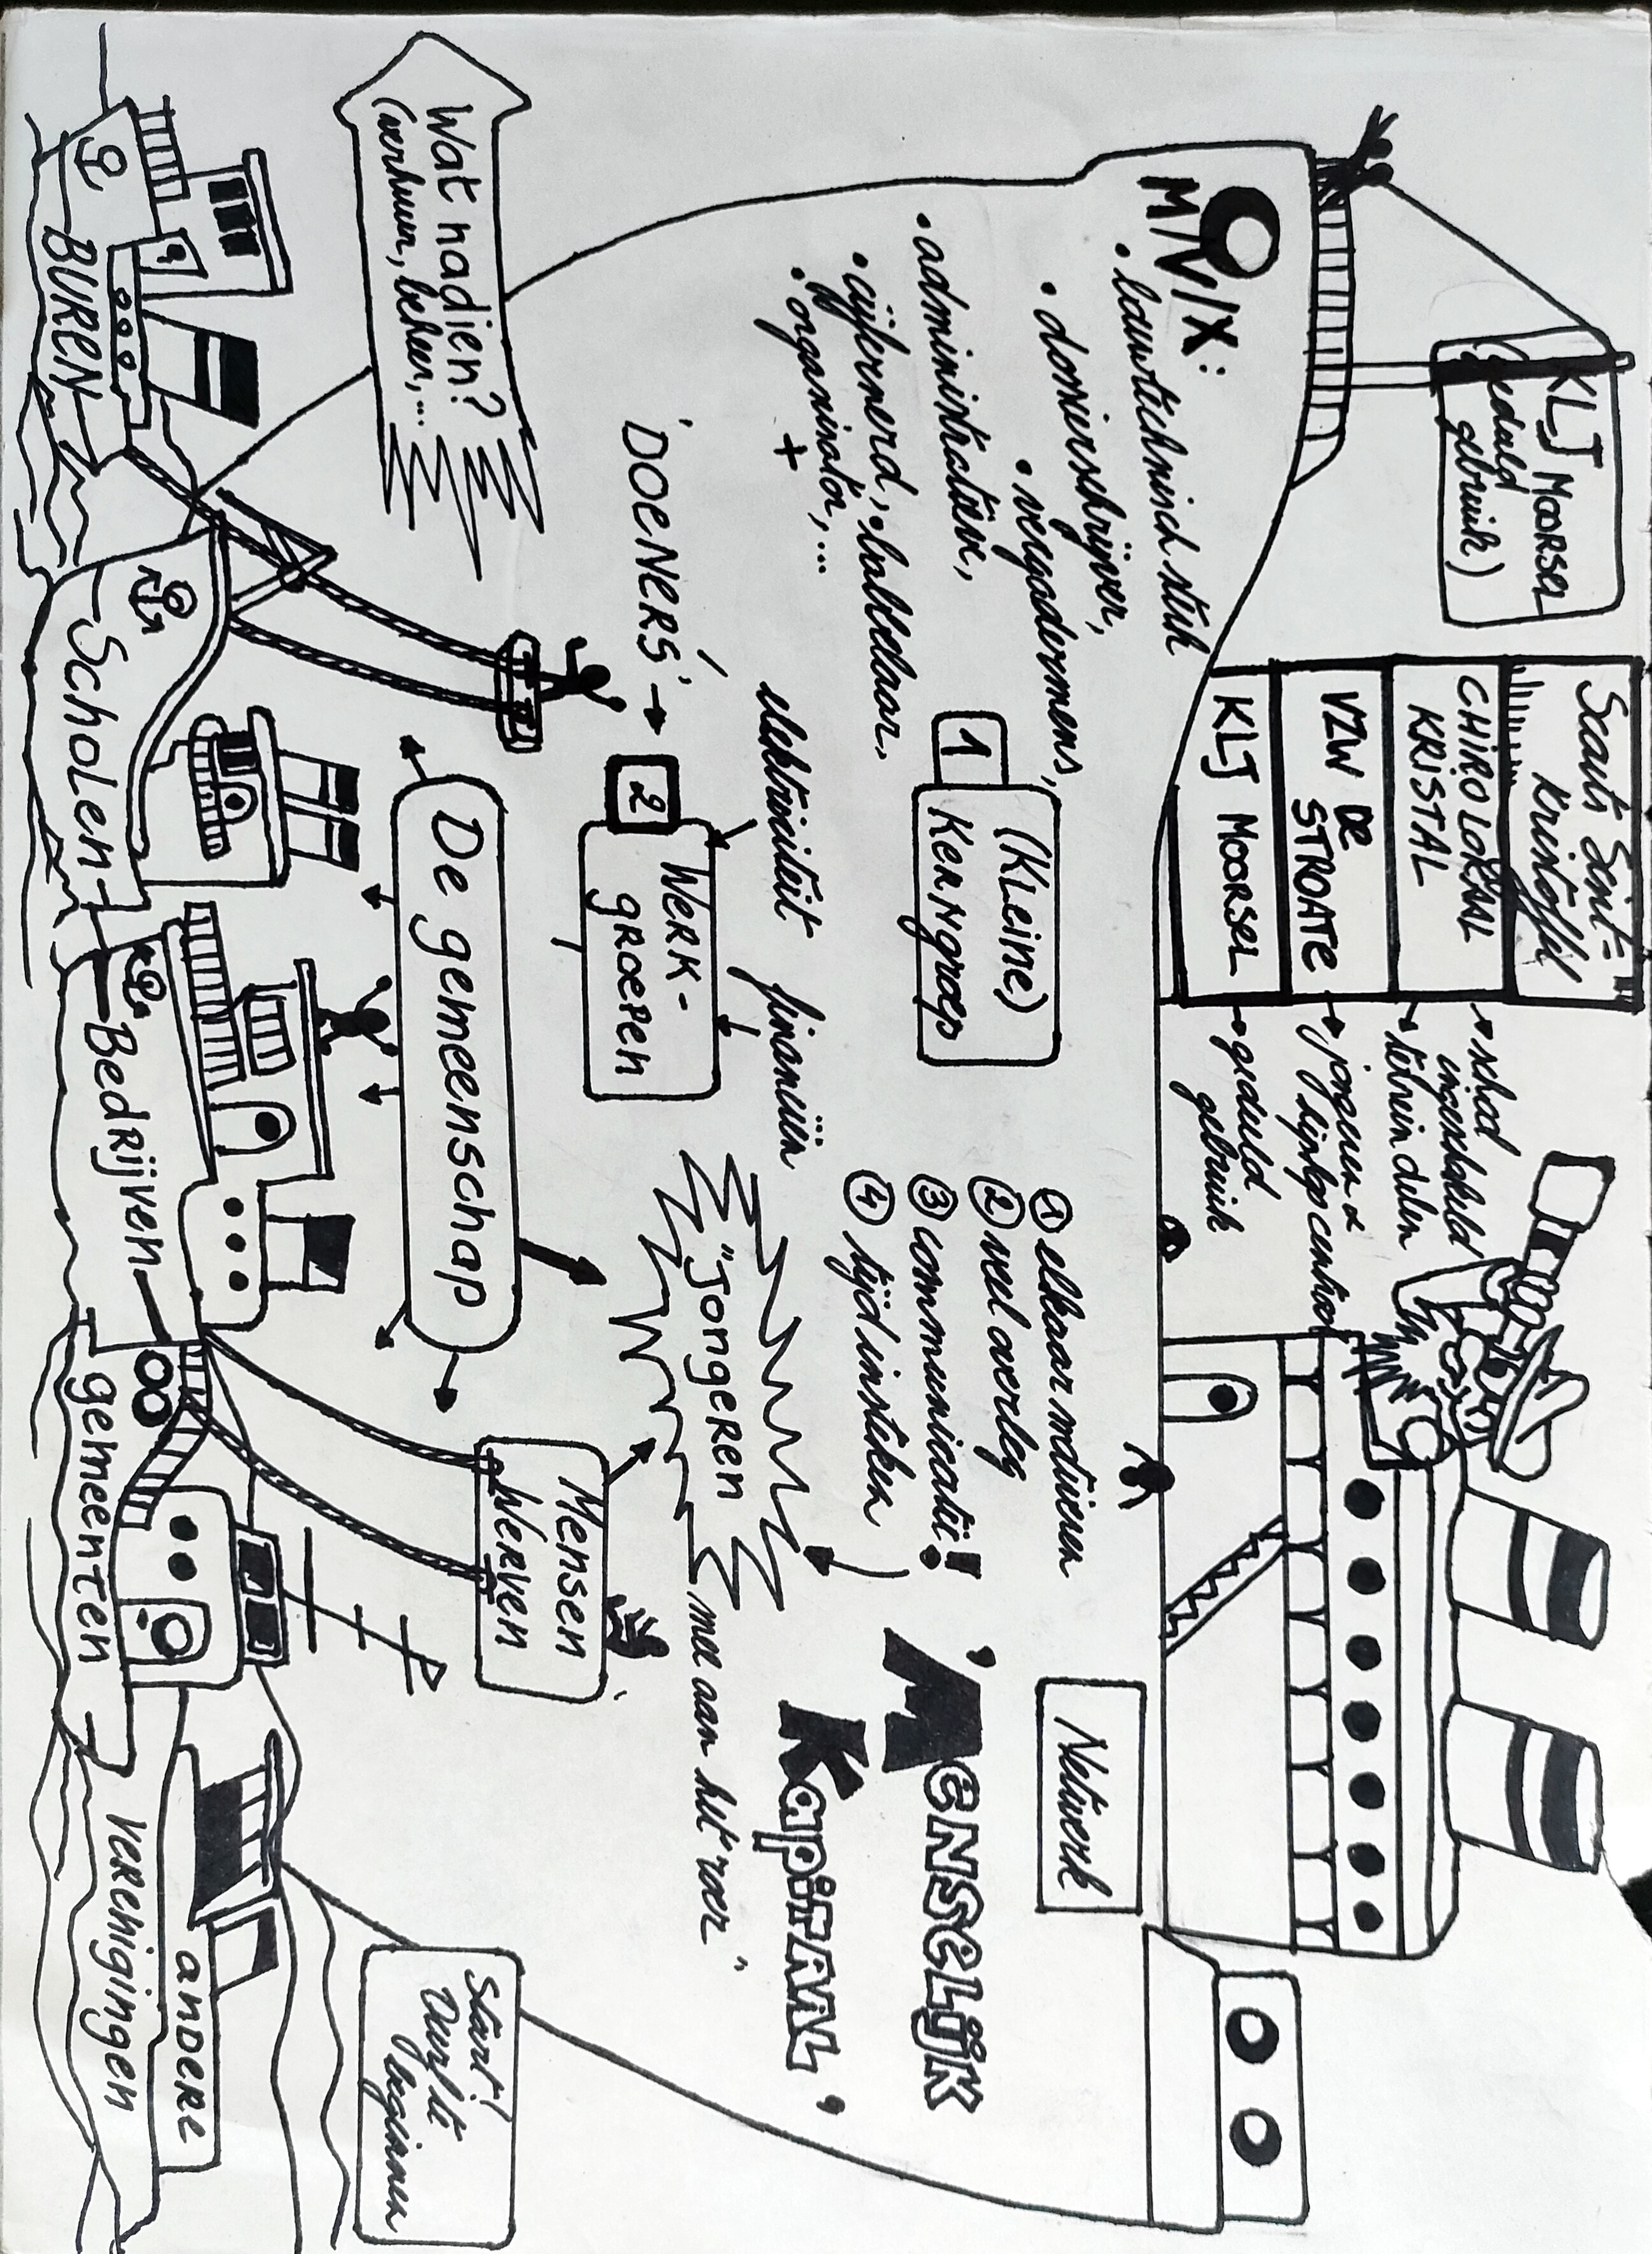 KLJ MOORSEL
(gedeeld
gebruik)
Scouts Sint-
Kristoffel
CHIRO LORKAAL
KRISTAL
VZW DE
STROATE
KLJ MOORSEL
→ school
ingeschakeld
→ terrein delen
→ jongeren &
→ gedeeld
gebruik
M/V/X:
• bouwtechnisch stuk
• dossierschrijver,
• vergadermens,
• administratieve,
• cijfernerd, • babbelaar,
• organisator, ...
+
1
(Kleine)
Kerngroep
① elkaar motiveren
② veel overleg
③ communicatie!
④ tijd insteken
Netwerk
'MENSELIJK
KAPITAAL'
'DOENERS' →
2
WERK-
GROEPEN
elektriciteit
financiën
"Jongeren
mee aan het roer"
Wat nadien?
(verhuur, beheer, ...
De gemeenschap
Mensen
Werven
Start!
Durf te
beginnen
BUREN
Scholen
Bedrijven
gemeenten
andere
verenigingen